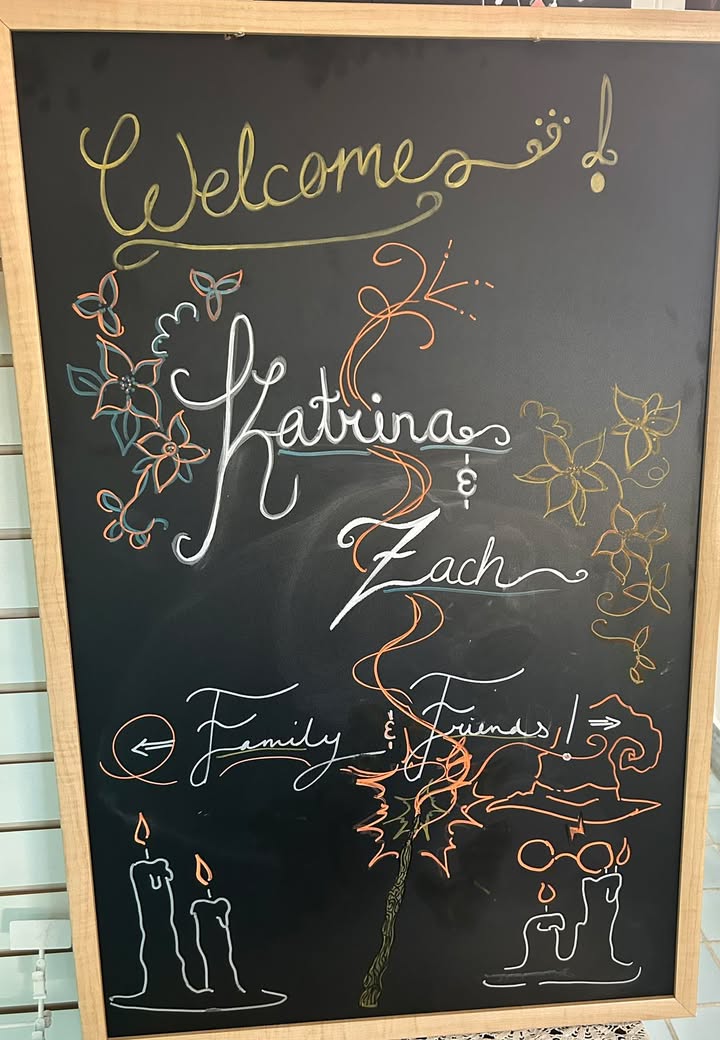 Welcome!
Katrina
&
Zach
Family & Friends!